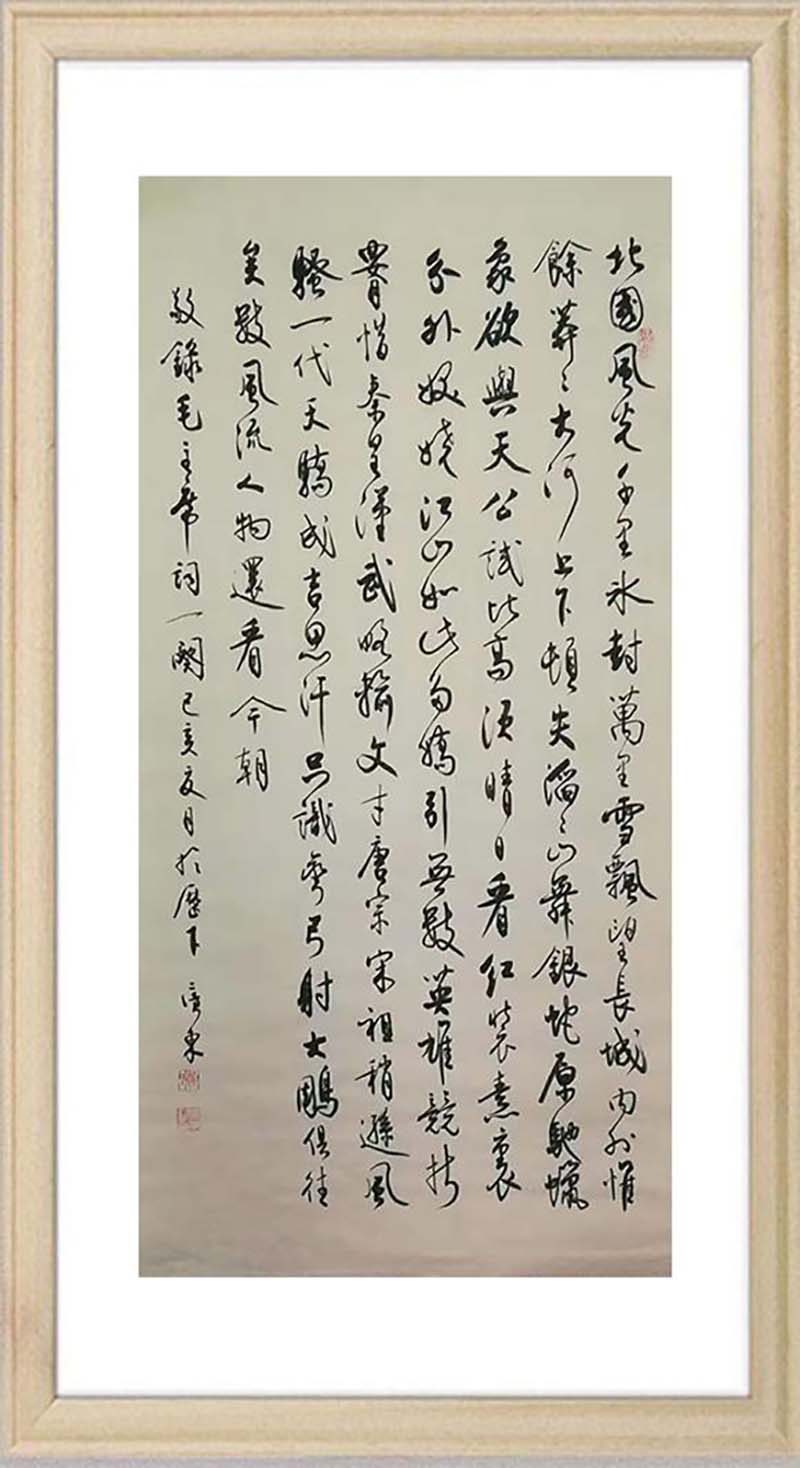 北國風光千里冰封萬里雪飄望長城內外惟
餘莽〻大河上下頓失滔〻山舞銀蛇原馳蠟
象欲與天公試比高須晴日看紅裝素裹
分外妖嬈江山如此多嬌引無數英雄競折
腰惜秦皇漢武略輸文才唐宗宋祖稍遜風
騷一代天驕成吉思汗只識彎弓射大鵰俱往
矣數風流人物還看今朝
敬錄毛主席詞一闋己亥夏月於歷下